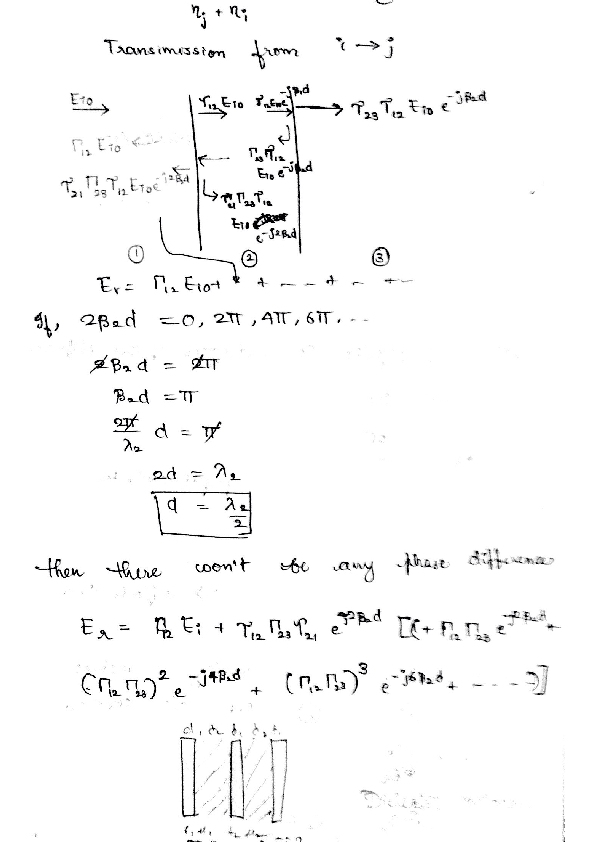 η_j + η_i
Transmission from i → j
E_i0 τ_12 E_i0 τ_12 E_i0 e^{-jβ_2d} → τ_23 τ_12 E_i0 e^{-jβ_2d}
Γ_12 E_i0
Γ_23 τ_12 E_i0 e^{-jβ_2d}
τ_21 Γ_23 τ_12 E_i0 e^{-j2β_2d}
Γ_21 Γ_23 τ_12
E_i0
e^{-j2β_2d}
① ② ③
E_r = Γ_12 E_i0 + + -- + - + -
If, 2β_2d = 0, 2π, 4π, 6π, ...
2β_2d = 2π
β_2d = π
2π/λ_2 d = π
2d = λ_2
d = λ_2/2
then there won't be any phase difference
E_r = Γ_12 E_i + τ_12 Γ_23 τ_21 e^{-j2β_2d} [1 + Γ_12 Γ_23 e^{-j2β_2d} +
(Γ_12 Γ_23)^2 e^{-j4β_2d} + (Γ_12 Γ_23)^3 e^{-j6β_2d} + ----]
d_1 d_2 d_1 d_2 d_1